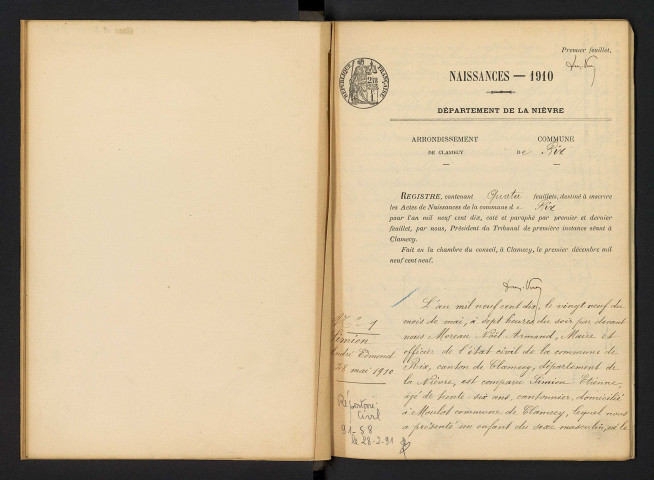 Premier feuillet,
NAISSANCES — 1910
RÉPUBLIQUE FRANÇAISE
DÉPARTEMENT DE LA NIÈVRE
ARRONDISSEMENT
DE CLAMECY
COMMUNE
de Rix
REGISTRE, contenant Quatre feuillets, destiné à inscrire
les Actes de Naissances de la commune de Rix
pour l'an mil neuf cent dix, coté et paraphé par premier et dernier
feuillet, par nous, Président du Tribunal de première instance séant à
Clamecy.
Fait en la chambre du conseil, à Clamecy, le premier décembre mil
neuf cent neuf.
N° 1
Simion
André Edmond
28 mai 1910
Répertoire
Civil
91-58
le 28-2-91
L'an mil neuf cent dix, le vingt neuf du
mois de mai, à sept heures du soir par devant
nous Moreau Noël Armand, Maire et
officier de l'état civil de la commune de
Rix, canton de Clamecy, département de
la Nièvre, est comparu Simion Etienne,
âgé de trente-six ans, cantonnier, domicilié
à Moulot commune de Clamecy, lequel nous
a présenté un enfant du sexe masculin, né le